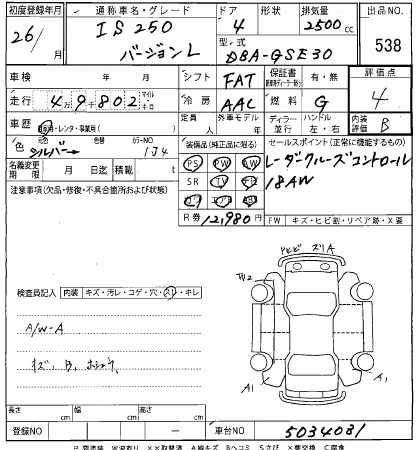 初度登録年月 通称車名・グレード ドア 形状 排気量 出品NO
26/ 月 IS250 バージョンL 4 2500cc 538
型・式 DBA-GSE30
車検 年 月 シフト FAT 保証書 有・無 評価点
走行 4万9千802 マイル キロ 冷房 AAC 燃料 G 4
車歴 自家用・レンタ・事業用( ) 定員 人 外車モデル 年 ディーラー 並行 ハンドル 左・右 内装評価 B
色 元色 シルバー 色替 カラーNO 1J4
装備品(純正品に限る) セールスポイント(正常に機能するもの)
名義変更期限 月 日迄 積載 t
PS PW AW
SR TV
レーダークルーズコントロール
18AW
注意事項(欠品・修復・不具合箇所および状態)
R券 12,980円
FW キズ・ヒビ割・リペア跡・X要
検査員記入 内装 キズ・汚レ・コゲ・穴・スレ・キレ
A/W-A
キズ、B、
トビヒビ ズリA
W2
A1 A1
長さ cm 幅 cm 高さ cm
登録NO ー 車台NO 5034081
P要塗装 W波有リ XX取替済 A線キズ Bヘコミ Sさび X要交換 C腐食